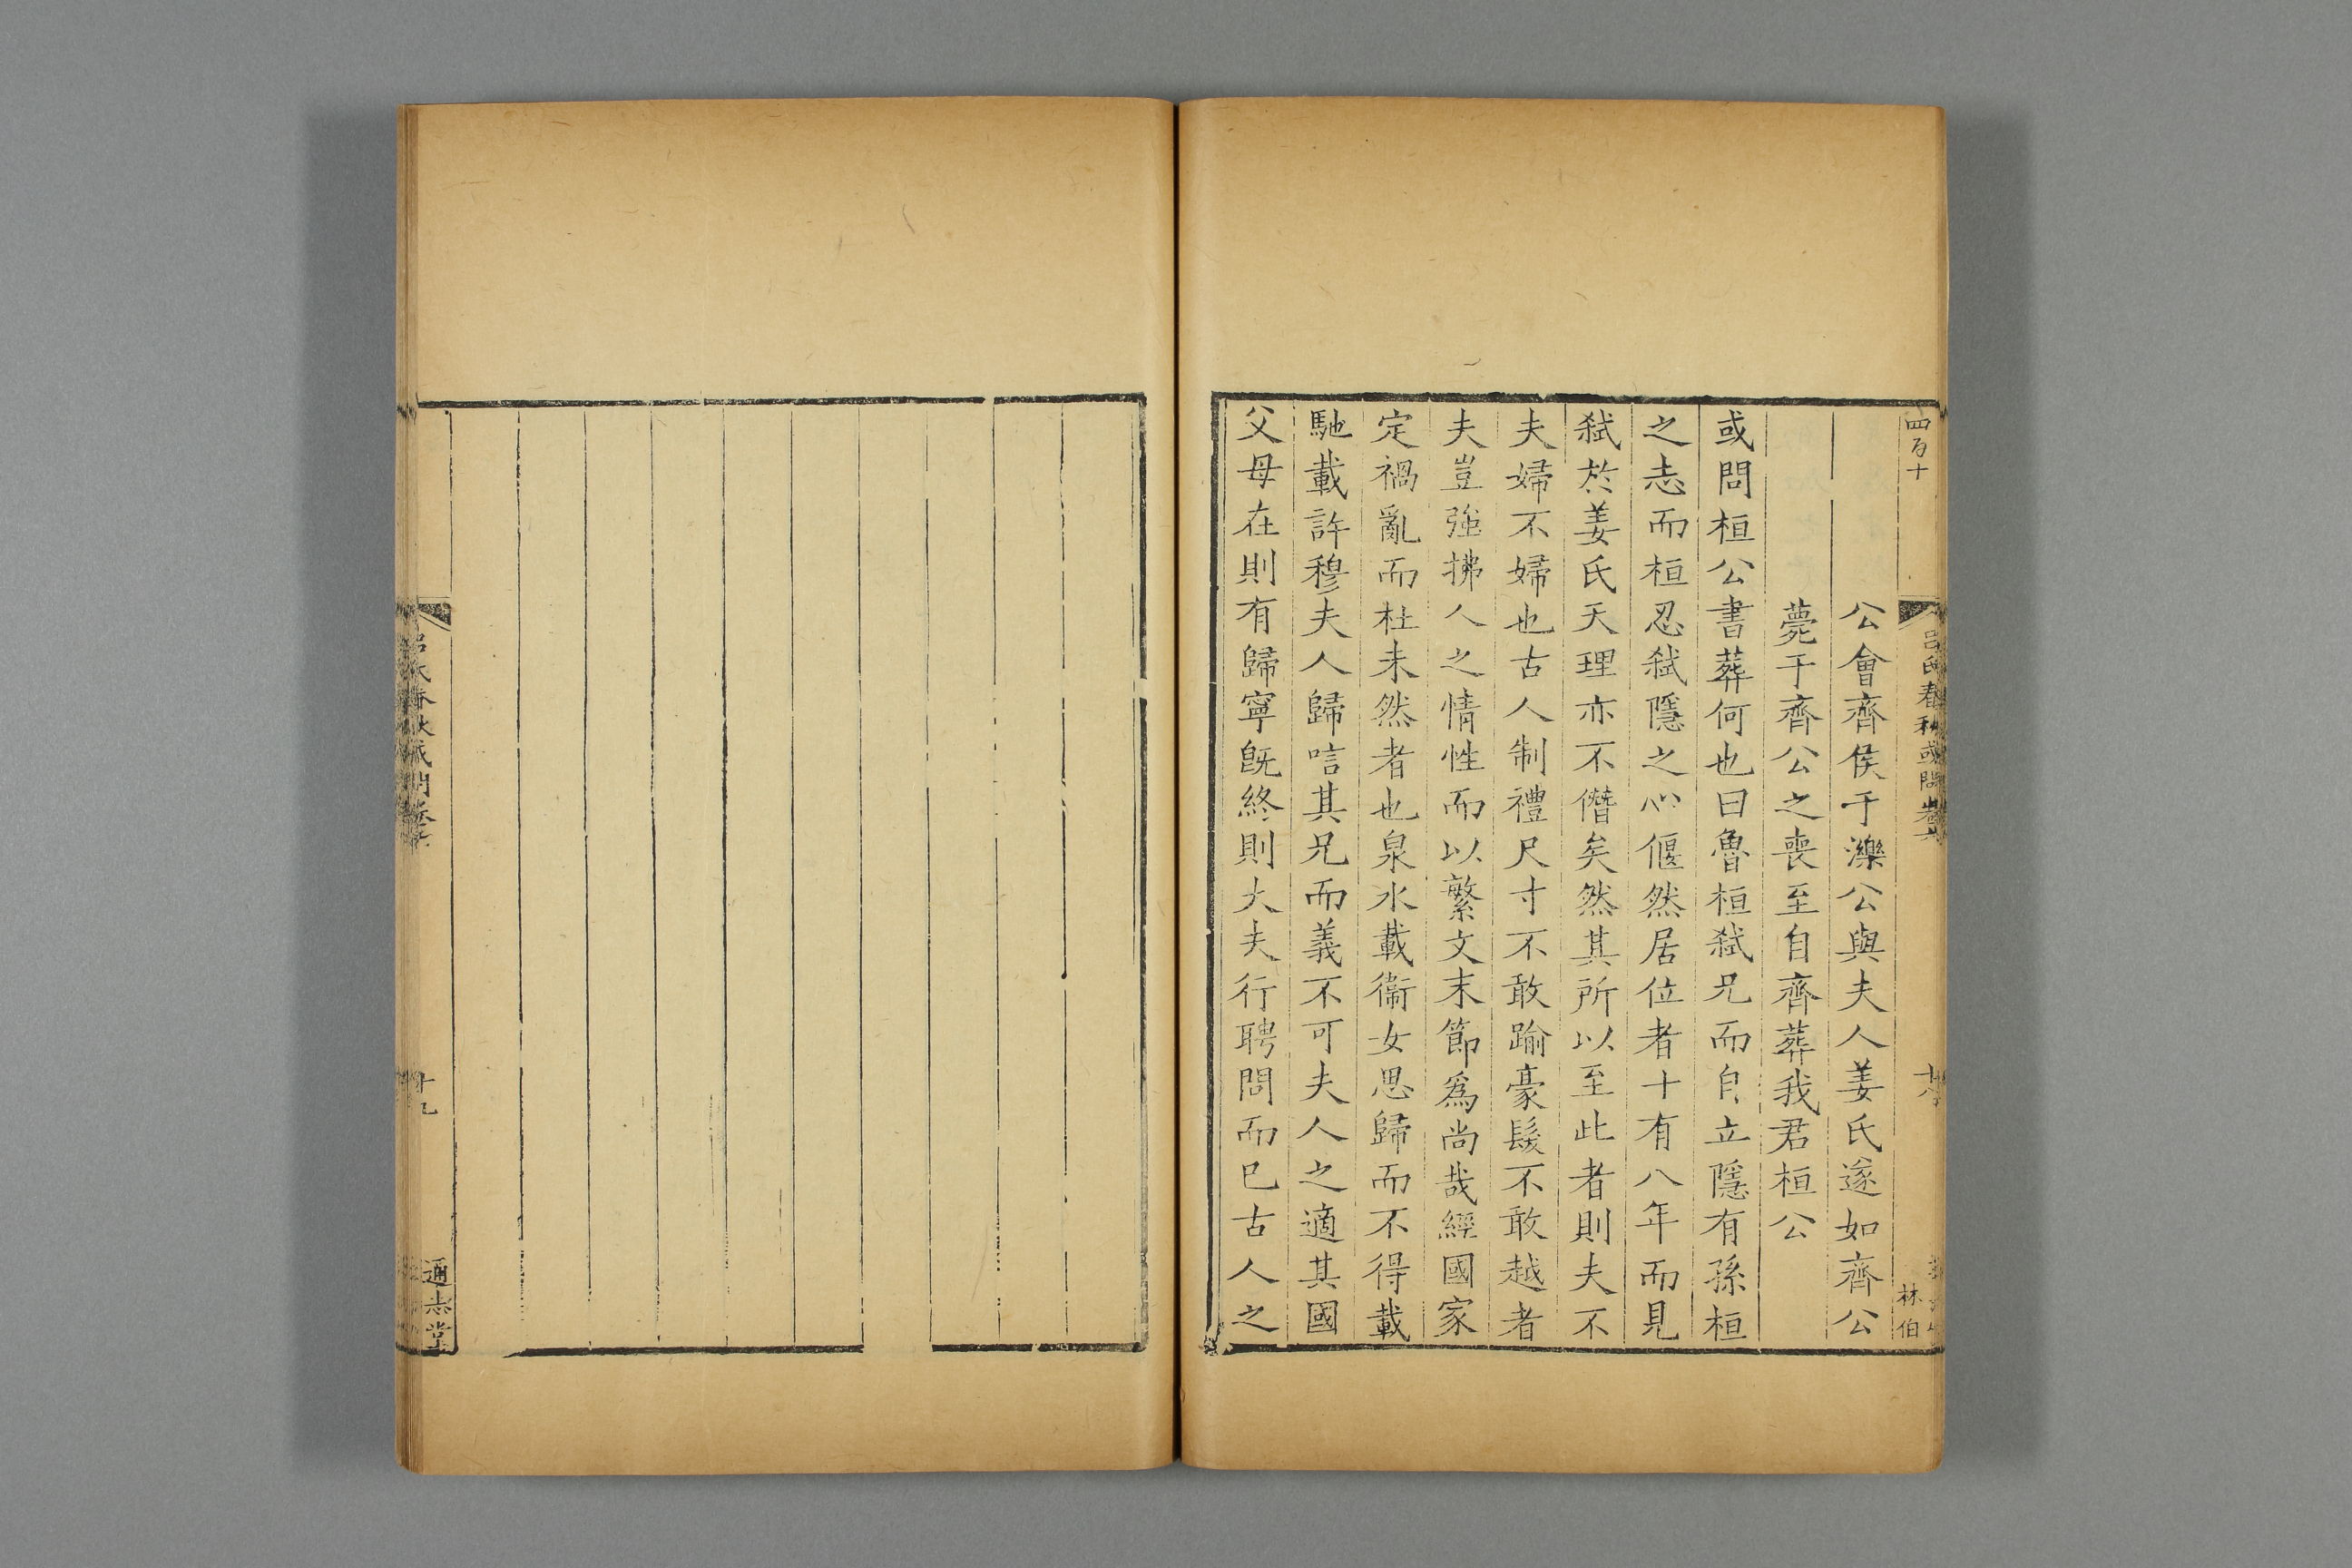 四百十
呂氏春秋或問卷六
十八
林伯
公會齊侯于濼公與夫人姜氏遂如齊公
薨于齊公之喪至自齊葬我君桓公
或問桓公書葬何也曰魯桓弑兄而自立隱有孫桓
之志而桓忍弑隱之心偃然居位者十有八年而見
弑於姜氏天理亦不僭矣然其所以至此者則夫不
夫婦不婦也古人制禮尺寸不敢踰豪髮不敢越者
夫豈強拂人之情性而以繁文末節爲尚哉經國家
定禍亂而杜未然者也泉水載衞女思歸而不得載
馳載許穆夫人歸唁其兄而義不可夫人之適其國
父母在則有歸寧旣終則大夫行聘問而已古人之
呂氏春秋或問卷六
十九
通志堂